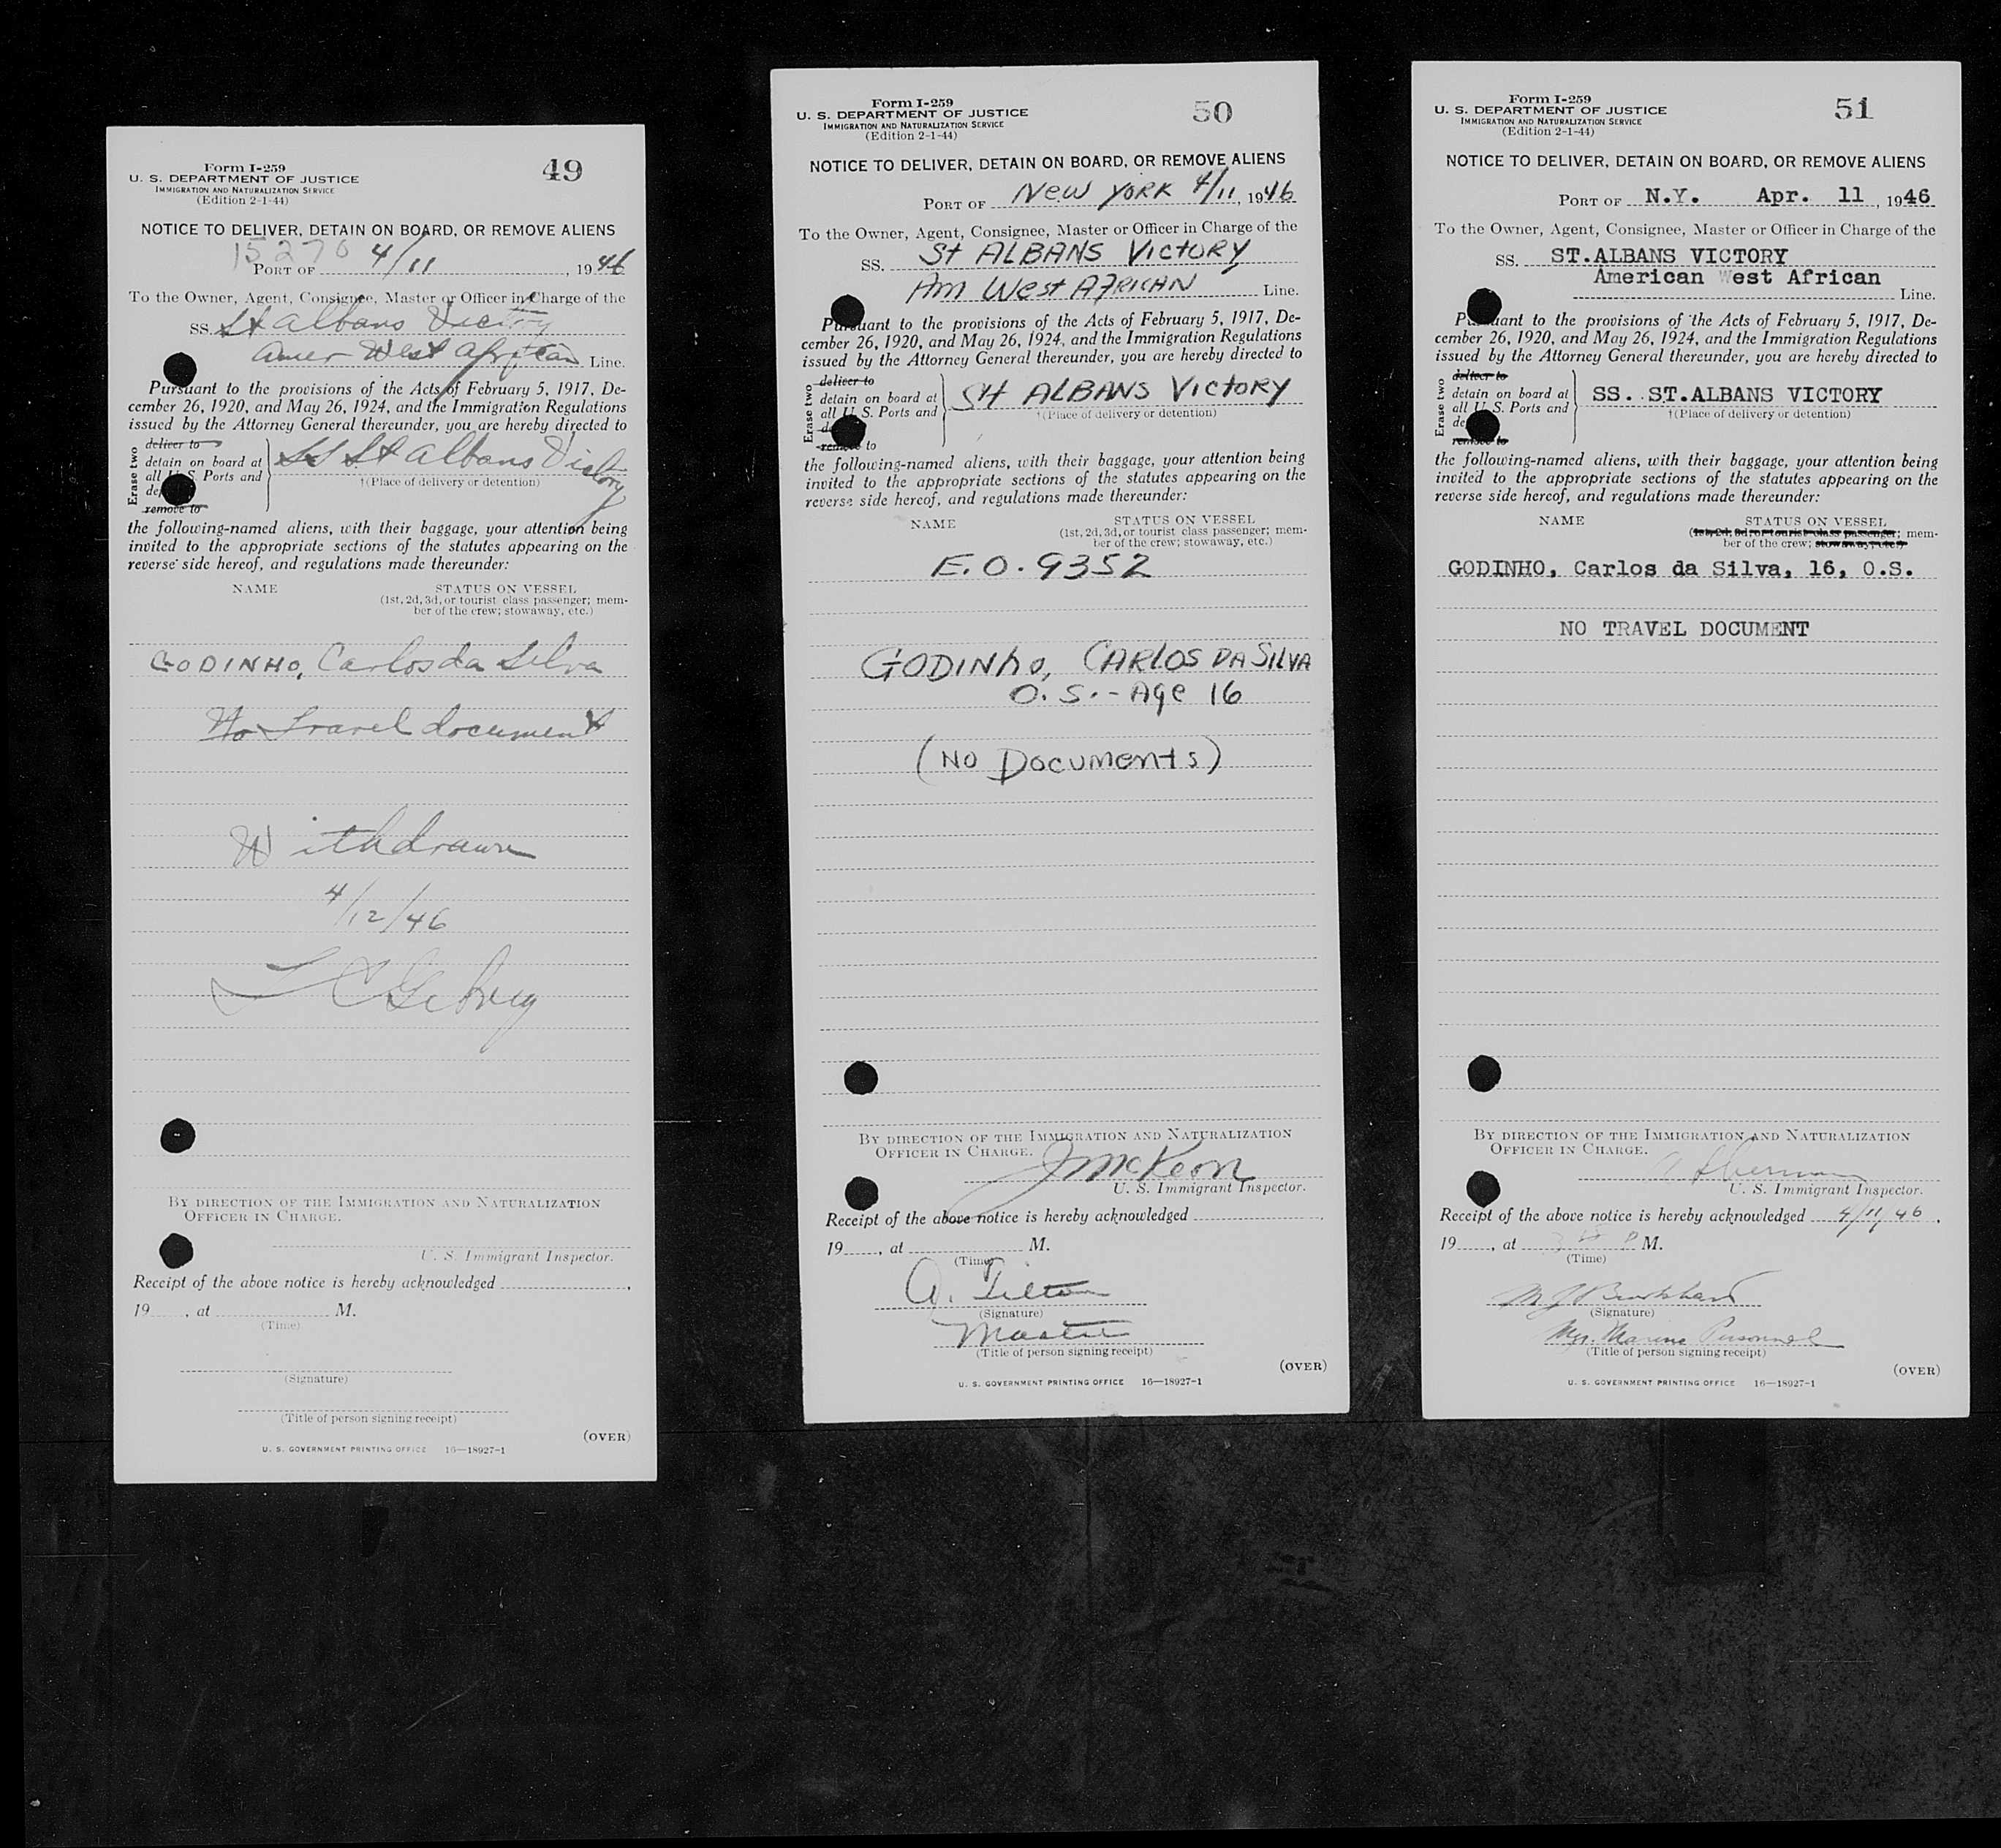 Form I-259
U. S. DEPARTMENT OF JUSTICE
IMMIGRATION AND NATURALIZATION SERVICE
(Edition 2-1-44)
49
NOTICE TO DELIVER, DETAIN ON BOARD, OR REMOVE ALIENS
15270
PORT OF 4/11, 1946
To the Owner, Agent, Consignee, Master or Officer in Charge of the
SS. St Albans Victory
Amer West African Line.
Pursuant to the provisions of the Acts of February 5, 1917, De-
cember 26, 1920, and May 26, 1924, and the Immigration Regulations
issued by the Attorney General thereunder, you are hereby directed to
Erase two
deliver to
detain on board at
all U. S. Ports and
SS St Albans Victory
†(Place of delivery or detention)
remove to
the following-named aliens, with their baggage, your attention being
invited to the appropriate sections of the statutes appearing on the
reverse side hereof, and regulations made thereunder:
NAME STATUS ON VESSEL
(1st, 2d, 3d, or tourist class passenger; mem-
ber of the crew; stowaway, etc.)
GODINHO, Carlos da Silva
No travel document
Withdrawn
4/12/46
BY DIRECTION OF THE IMMIGRATION AND NATURALIZATION
OFFICER IN CHARGE.
U. S. Immigrant Inspector.
Receipt of the above notice is hereby acknowledged
19 , at M.
(Time)
(Signature)
(Title of person signing receipt)
(OVER)
U. S. GOVERNMENT PRINTING OFFICE 16—18927-1
Form I-259
U. S. DEPARTMENT OF JUSTICE
IMMIGRATION AND NATURALIZATION SERVICE
(Edition 2-1-44)
50
NOTICE TO DELIVER, DETAIN ON BOARD, OR REMOVE ALIENS
PORT OF New York 4/11, 1946
To the Owner, Agent, Consignee, Master or Officer in Charge of the
SS. St ALBANS VICTORY
Am West AFRICAN Line.
Pursuant to the provisions of the Acts of February 5, 1917, De-
cember 26, 1920, and May 26, 1924, and the Immigration Regulations
issued by the Attorney General thereunder, you are hereby directed to
Erase two
deliver to
detain on board at
all U. S. Ports and
St ALBANS VICTORY
†(Place of delivery or detention)
remove to
the following-named aliens, with their baggage, your attention being
invited to the appropriate sections of the statutes appearing on the
reverse side hereof, and regulations made thereunder:
NAME STATUS ON VESSEL
(1st, 2d, 3d, or tourist class passenger; mem-
ber of the crew; stowaway, etc.)
E.O. 9352
GODINHO, CARLOS DA SILVA
O. S. - Age 16
(No Documents)
BY DIRECTION OF THE IMMIGRATION AND NATURALIZATION
OFFICER IN CHARGE.
J McKeon
U. S. Immigrant Inspector.
Receipt of the above notice is hereby acknowledged
19 , at M.
(Time)
A. Tilton
(Signature)
Master
(Title of person signing receipt)
(OVER)
U. S. GOVERNMENT PRINTING OFFICE 16—18927-1
Form I-259
U. S. DEPARTMENT OF JUSTICE
IMMIGRATION AND NATURALIZATION SERVICE
(Edition 2-1-44)
51
NOTICE TO DELIVER, DETAIN ON BOARD, OR REMOVE ALIENS
PORT OF N.Y. Apr. 11, 1946
To the Owner, Agent, Consignee, Master or Officer in Charge of the
SS. ST.ALBANS VICTORY
American West African
Line.
Pursuant to the provisions of the Acts of February 5, 1917, De-
cember 26, 1920, and May 26, 1924, and the Immigration Regulations
issued by the Attorney General thereunder, you are hereby directed to
Erase two
deliver to
detain on board at
all U. S. Ports and
SS. ST.ALBANS VICTORY
†(Place of delivery or detention)
remove to
the following-named aliens, with their baggage, your attention being
invited to the appropriate sections of the statutes appearing on the
reverse side hereof, and regulations made thereunder:
NAME STATUS ON VESSEL
(1st, 2d, 3d, or tourist class passenger; mem-
ber of the crew; stowaway, etc.)
GODINHO, Carlos da Silva, 16, O.S.
NO TRAVEL DOCUMENT
BY DIRECTION OF THE IMMIGRATION AND NATURALIZATION
OFFICER IN CHARGE.
A Sherman
U. S. Immigrant Inspector.
Receipt of the above notice is hereby acknowledged 4/11/46.
19 , at P M.
(Time)
(Signature)
Mgr. Marine Personnel
(Title of person signing receipt)
(OVER)
U. S. GOVERNMENT PRINTING OFFICE 16—18927-1